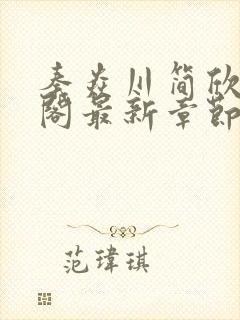 秦焱川简欣
阁最新章节
范瑋琪